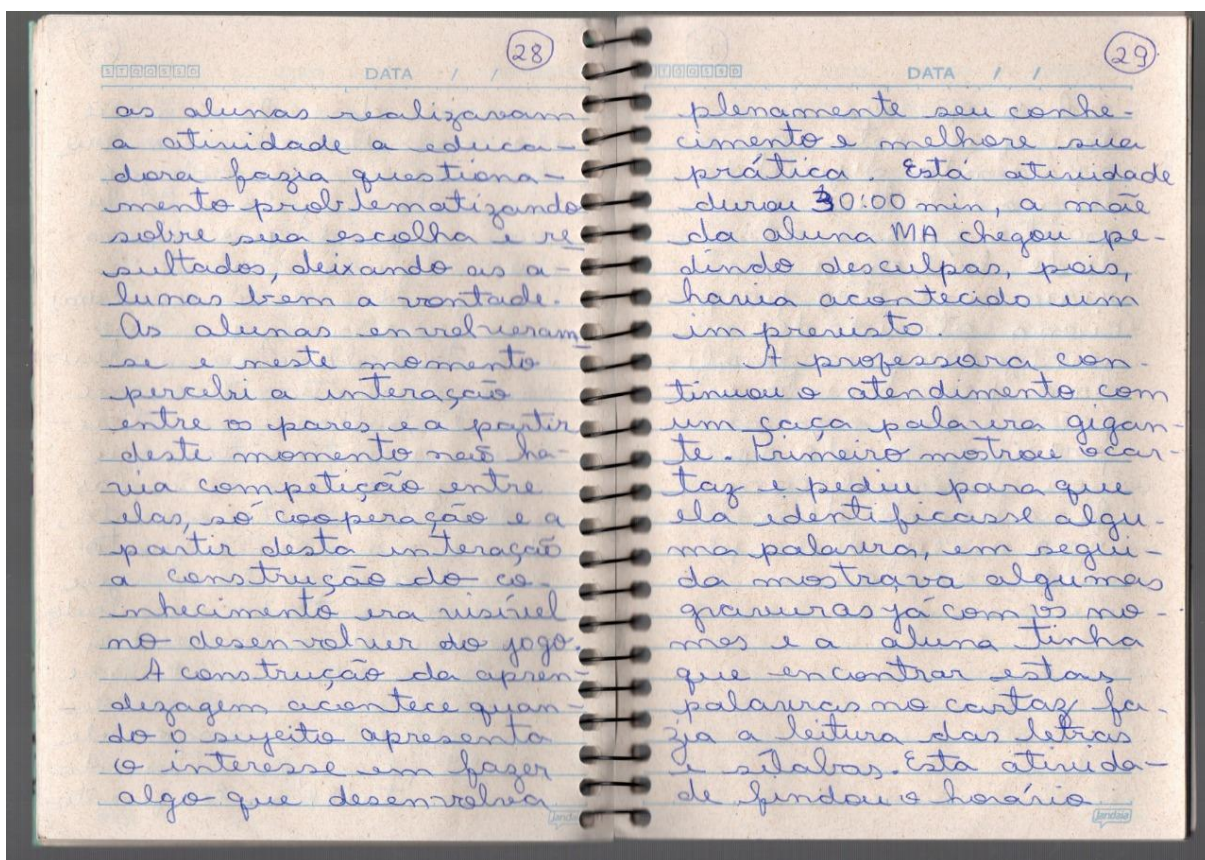 28
STQQSSD
DATA / /
as alunas realizavam
a atividade a educa-
dora fazia questiona-
mento problematizando
sobre sua escolha e re
sultados, deixando as a-
lunas bem a vontade.
As alunas envolveram-
se e neste momento
percebi a interação
entre os pares e a partir
deste momento não ha-
via competição entre
elas, só cooperação e a
partir desta interação
a construção do co-
nhecimento era visível
no desenvolver do jogo.
A construção da apren-
dizagem acontece quan-
do o sujeito apresenta
o interesse em fazer
algo que desenvolva
29
STQQSSD
DATA / /
plenamente seu conhe-
cimento e melhore sua
prática. Está atividade
durou 30:00 min, a mãe
da aluna MA chegou pe-
dindo desculpas, pois,
havia acontecido um
imprevisto.
A professora con-
tinuou o atendimento com
um caça palavra gigan-
te. Primeiro mostrou o car-
taz e pediu para que
ela identificasse algu-
ma palavra, em segui-
da mostrava algumas
gravuras já com os no-
mes e a aluna tinha
que encontrar estas
palavras no cartaz fa-
zia a leitura das letras
e sílabas. Esta ativida-
de findou o horário.
Jandaia